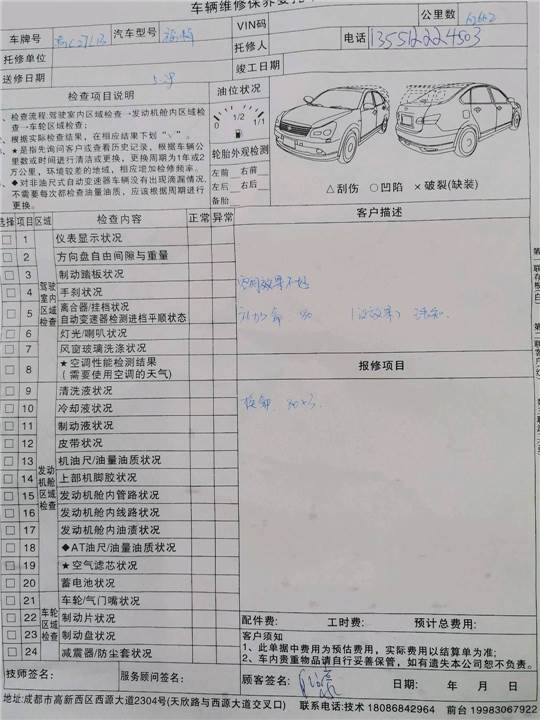 车辆维修保养委托
公里数
VIN码
车牌号 汽车型号
托修人
电话 135512224503
托修单位
竣工日期
送修日期
检查项目说明
油位状况
0 1/2 1/1
、检查流程:驾驶室内区域检查→发动机舱内区域检
查→车轮区域检查;
、根据实际检查结果,在相应结果下划"√"。
、★是指先询问客户或查看历史记录,根据车辆公
里数或时间进行清洁或更换,更换周期为1年或2
万公里,环境较差的地域,相应增加检修频率。
、◆对非油尺式自动变速器车辆没有出现滴漏情况,
不需要每次都检查油量油质,应该根据周期进行
更换。
轮胎外观检测
左前 右前
左后 右后
备胎
△刮伤 ○凹陷 ×破裂(缺装)
选择 项目 区域 检查内容 正常 异常
客户描述
驾驶室内区域检查
1 仪表显示状况
2 方向盘自由间隙与重量
3 制动踏板状况
4 手刹状况
5 离合器/挂档状况
自动变速器检测进档平顺状态
6 灯光/喇叭状况
7 风窗玻璃洗涤状况
8 ★空调性能检测结果
(需要使用空调的天气)
空调效果不好
报修项目
发动机舱区域检查
9 清洗液状况
10 冷却液状况
11 制动液状况
12 皮带状况
13 机油尺/油量油质状况
14 上部机脚胶状况
15 发动机舱内管路状况
16 发动机舱内线路状况
17 发动机舱内油渍状况
18 ◆AT油尺/油量油质状况
19 ★空气滤芯状况
20 蓄电池状况
车轮区域检查
21 车轮/气门嘴状况
22 制动片状况
23 制动盘状况
24 减震器/防尘套状况
配件费: 工时费: 预计总费用:
客户须知
1、此单据中费用为预估费用,实际费用以结算单为准;
2、车内贵重物品请自行妥善保管,如有遗失本公司恕不负责。
技师签名: 服务顾问签名: 顾客签名: 日期: 年 月 日
地址:成都市高新西区西源大道2304号(天欣路与西源大道交叉口) 联系电话:技术 18086842964 前台 19983067922